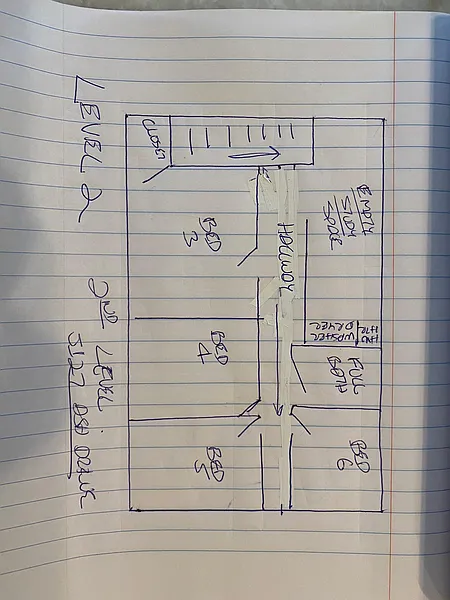 EMPTY
STUDY
SPACE
HW
HTR
DRYER
WASHER
FULL
BATH
BED
6
HALLWAY
CLOSET
BED
3
BED
4
BED
5
LEVEL 2
2ND LEVEL
5127